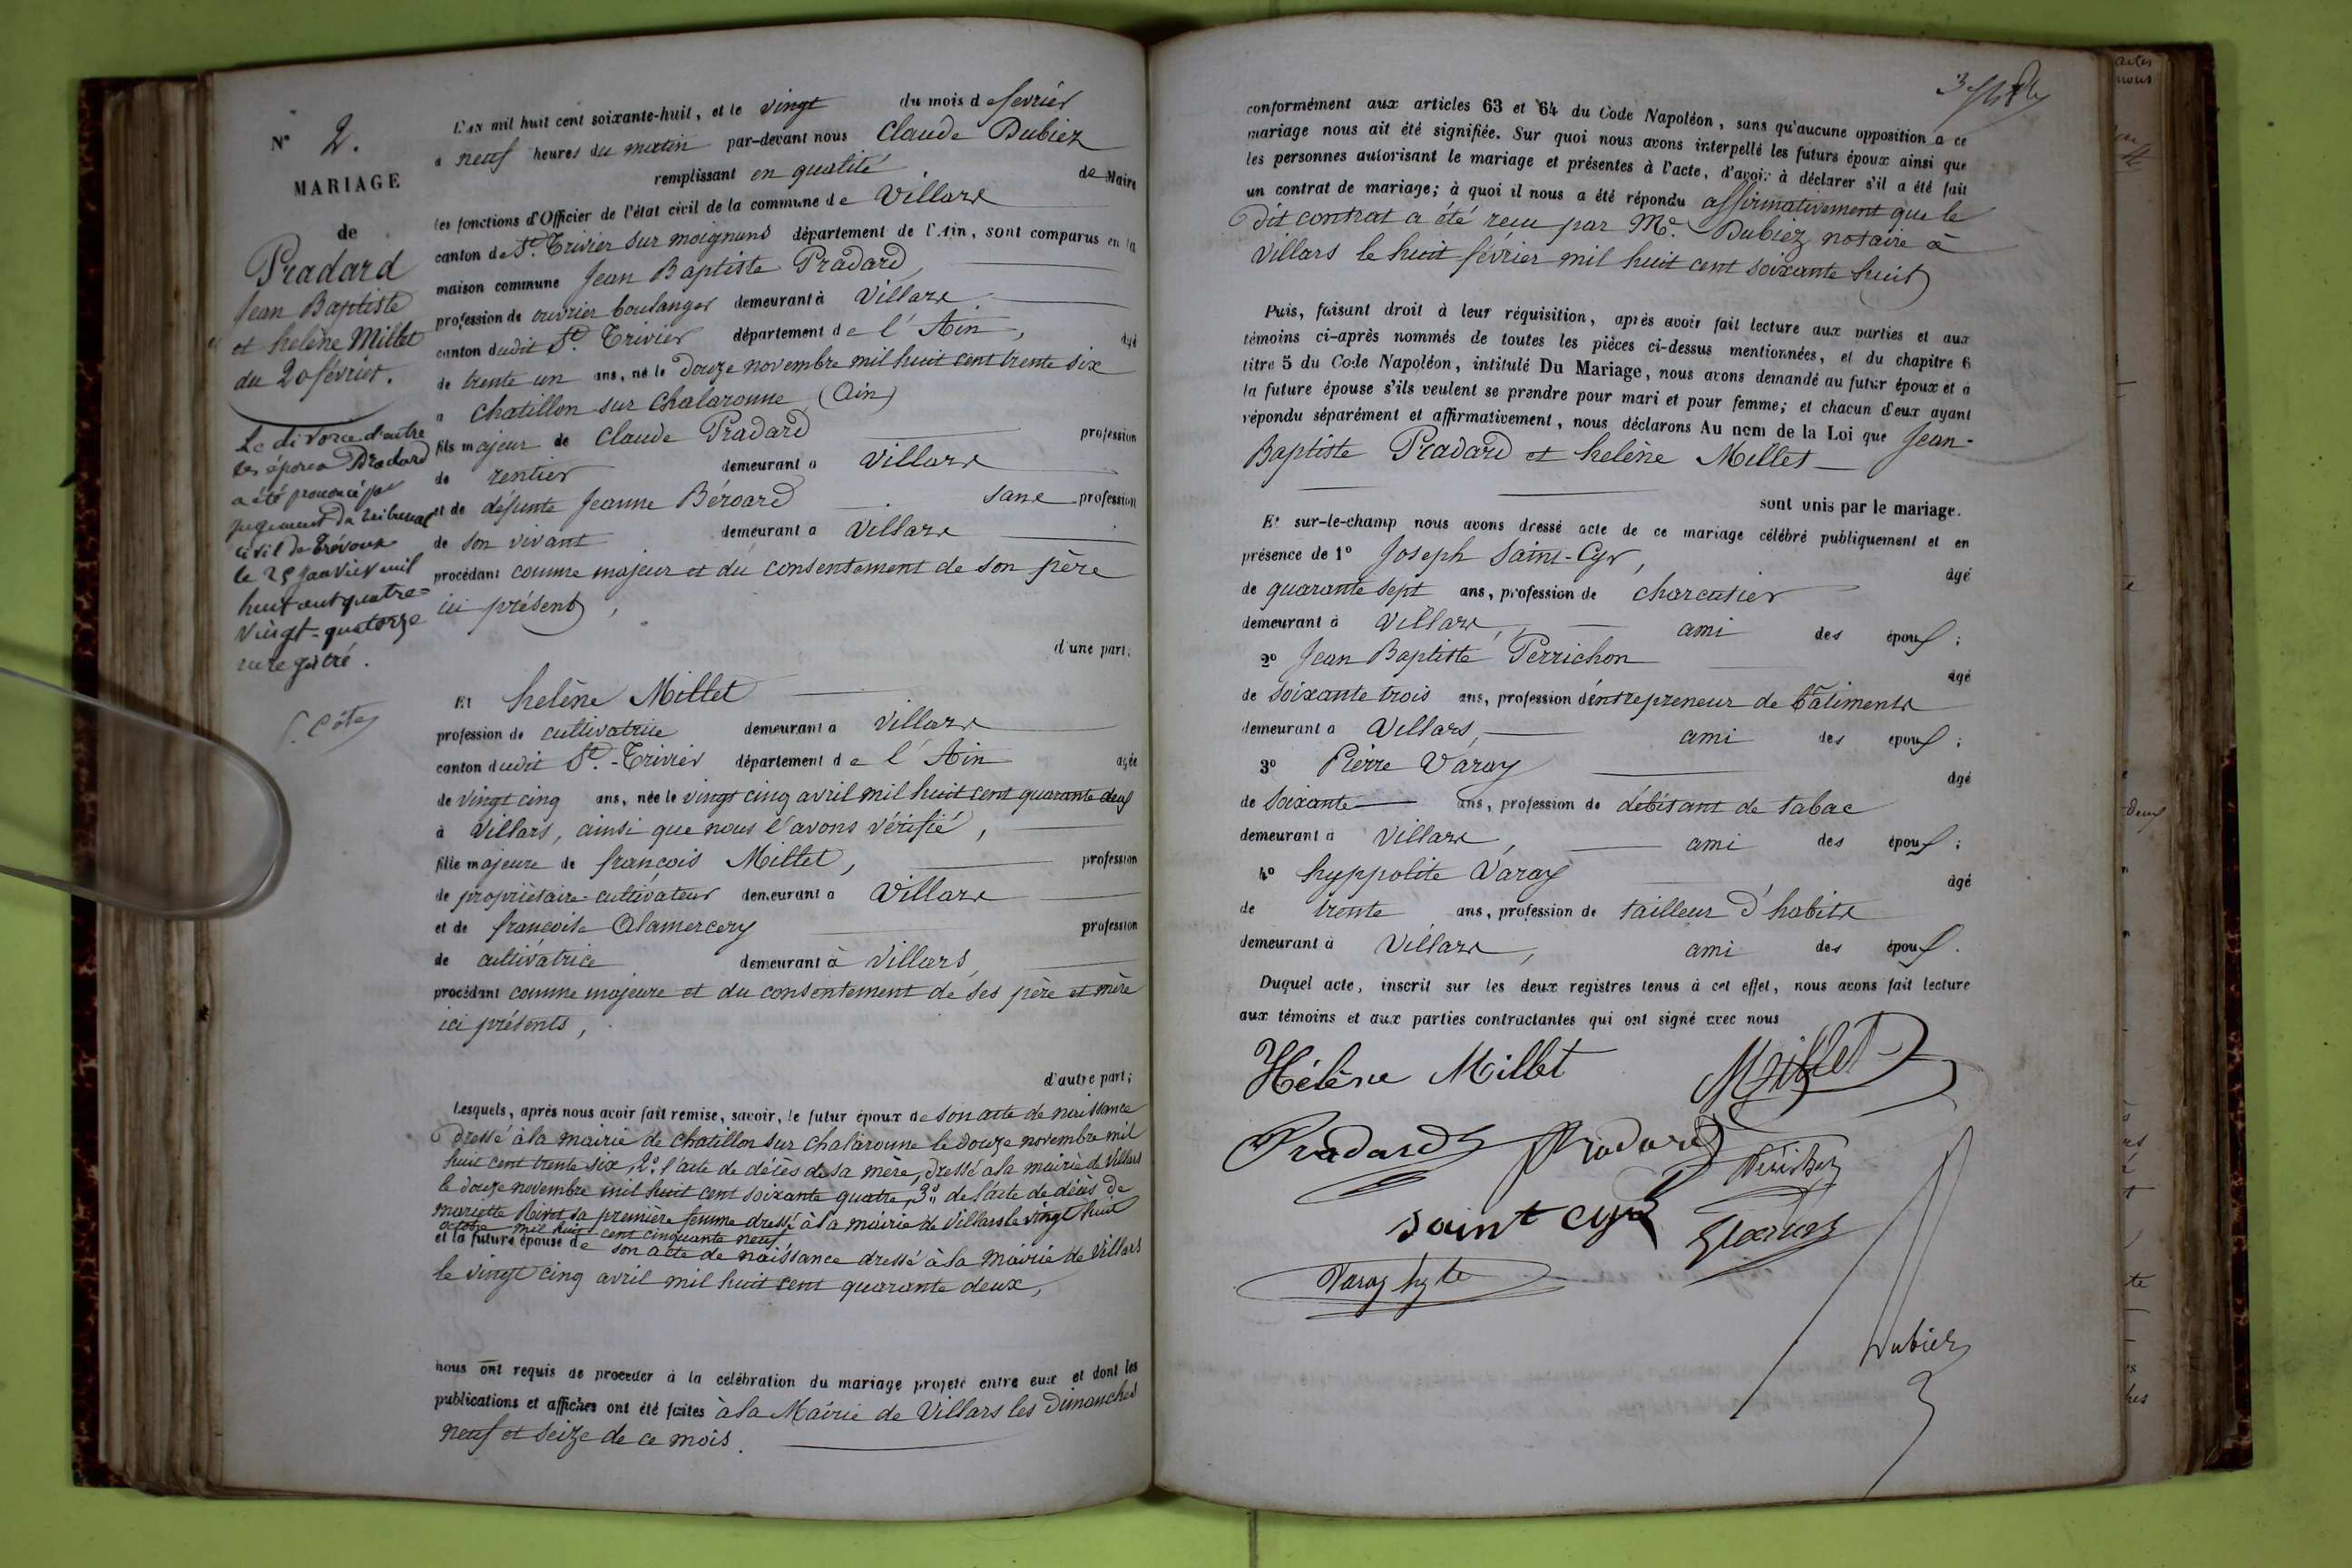 N° 2.
MARIAGE
de
Pradard
Jean Baptiste
et helène Millet
du 20 février.
Le divorce d'entre
les époux Pradard
a été prononcé par
jugement du tribunal
civil de Trévoux
le 25 janvier mil
huit cent quatre=
vingt-quatorze
enregistré.
L'an mil huit cent soixante-huit, et le vingt du mois de fevrier
à neuf heures du matin par-devant nous Claude Dubiez
remplissant en qualité de Maire
les fonctions d'Officier de l'état civil de la commune de Villars
canton de St. Trivier sur moignans département de l'Ain, sont comparus en la
maison commune Jean Baptiste Pradard
profession de ouvrier boulanger demeurant à Villars
canton dudit St. Trivier département de l'Ain, âgé
de trente un ans, né le douze novembre mil huit cent trente six
à Chatillon sur Chalaronne (Ain)
fils majeur de Claude Pradard profession
de rentier demeurant à Villars
et de défunte Jeanne Béroard sans profession
de son vivant demeurant à Villars
procédant comme majeur et du consentement de son père
ici présent,
d'une part.
Et helène Millet
profession de cultivatrice demeurant à Villars
canton dudit St.-Trivier département de l'Ain agée
de vingt cinq ans, née le vingt cinq avril mil huit cent quarante deux
à Villars, ainsi que nous l'avons vérifié,
fille majeure de françois Millet, profession
de propriétaire-cultivateur demeurant à Villars
et de françoise Alamercery profession
de cultivatrice demeurant à Villars,
procédant comme majeure et du consentement de ses père et mère
ici présents,
d'autre part;
Lesquels, après nous avoir fait remise, savoir, le futur époux de son acte de naissance
dressé à la mairie de Chatillon sur Chalaronne le douze novembre mil
huit cent trente six, 2° l'acte de décès de sa mère, dressé à la mairie de Villars
le douze novembre mil huit cent soixante quatre, 3° de l'acte de décès de
mariette sa première femme dressé à la mairie de Villars le vingt huit
octobre mil huit cent cinquante neuf
et la future épouse de son acte de naissance dressé à la Mairie de Villars
le vingt cinq avril mil huit cent quarante deux,
nous ont requis de procéder à la célébration du mariage projeté entre eux et dont les
publications et affiches ont été faites à la Mairie de Villars les Dimanches
neuf et seize de ce mois.
conformément aux articles 63 et 64 du Code Napoléon, sans qu'aucune opposition à ce
mariage nous ait été signifiée. Sur quoi nous avons interpellé les futurs époux ainsi que
les personnes autorisant le mariage et présentes à l'acte, d'avoir à déclarer s'il a été fait
un contrat de mariage; à quoi il nous a été répondu affirmativement que le
dit contrat a été reçu par Me. Dubiez notaire à
Villars le huit février mil huit cent soixante huit
Puis, faisant droit à leur réquisition, après avoir fait lecture aux parties et aux
témoins ci-après nommés de toutes les pièces ci-dessus mentionnées, et du chapitre 6
titre 5 du Code Napoléon, intitulé Du Mariage, nous avons demandé au futur époux et à
la future épouse s'ils veulent se prendre pour mari et pour femme; et chacun d'eux ayant
répondu séparément et affirmativement, nous déclarons Au nom de la Loi que Jean-
Baptiste Pradard et helène Millet
sont unis par le mariage.
Et sur-le-champ nous avons dressé acte de ce mariage célébré publiquement et en
présence de 1° Joseph Saint-Cyr, âgé
de quarante sept ans, profession de charcutier
demeurant à Villars, ami des époux;
2° Jean Baptiste Perrichon âgé
de soixante trois ans, profession d'entrepreneur de bâtiments
demeurant à Villars, ami des époux;
3° Pierre Varay âgé
de soixante ans, profession de débitant de tabac
demeurant à Villars, ami des époux;
4° hyppolite Varay âgé
de trente ans, profession de tailleur d'habits
demeurant à Villars, ami des époux.
Duquel acte, inscrit sur les deux registres tenus à cet effet, nous avons fait lecture
aux témoins et aux parties contractantes qui ont signé avec nous
Hélène Millet Millet
Pradard Pradard
saint cyr
Varay hyte
Dubiez